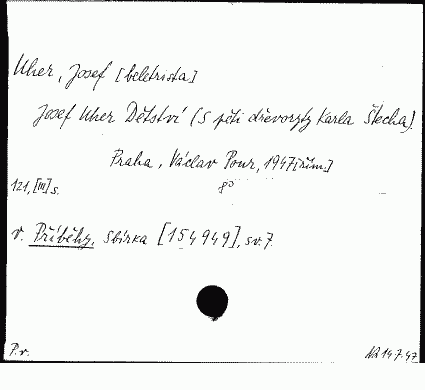 Uher, Josef [beletrista]
Josef Uher Dětství (S pěti dřevoryty Karla Štecha).
Praha, Václav Pour, 1947 [řím.]
121, [III] s. 8°
v. Příběhy, sbírka [154949], sv. 7.
P. v. 147.47